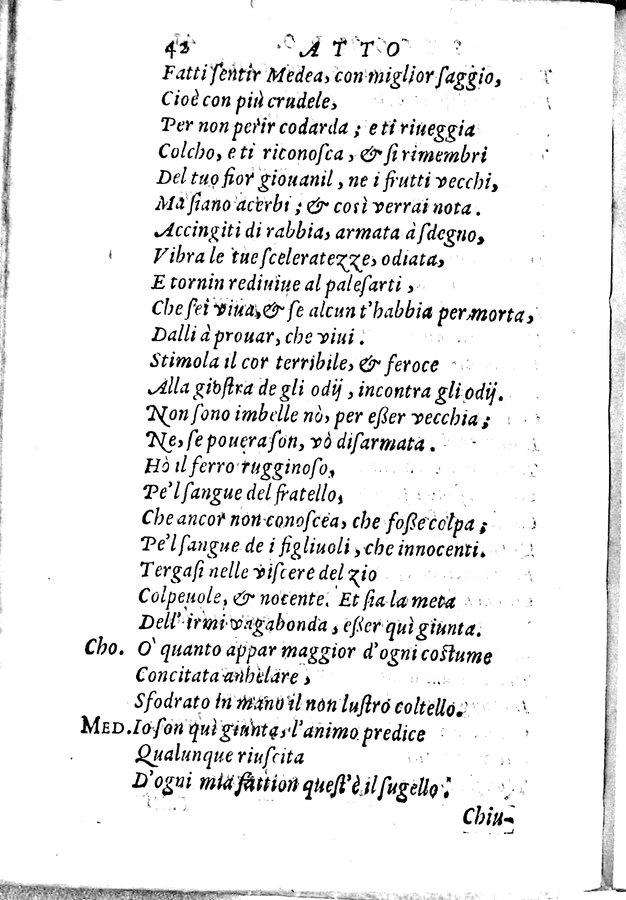 42 ATTO
Fatti ſentir Medea, con miglior ſaggio,
Cioè con più crudele,
Per non perir codarda; e ti riueggia
Colcho, e ti riconoſca, & ſi rimembri
Del tuo fior giouanil, ne i frutti vecchi,
Ma ſiano acerbi; & così verrai nota.
Accingiti di rabbia, armata à ſdegno,
Vibra le tue ſceleratezze, odiata,
E tornin rediuiue al paleſarti,
Che ſei viua, & ſe alcun t'habbia per morta,
Dalli à prouar, che viui.
Stimola il cor terribile, & feroce
Alla gioſtra de gli odij, incontra gli odij.
Non ſono imbelle nò, per eßer vecchia;
Ne, ſe pouera ſon, vò diſarmata.
Hò il ferro rugginoſo,
Pe'l ſangue del fratello,
Che ancor non conoſcea, che foße colpa;
Pe'l ſangue de i figliuoli, che innocenti.
Tergaſi nelle viſcere del zio
Colpeuole, & nocente. Et ſia la meta
Dell' irmi vagabonda, eßer quì giunta.
Cho. O' quanto appar maggior d'ogni coſtume
Concitata anhelare,
Sfodrato in mano il non luſtro coltello.
MED. Io ſon quì giunta, l'animo predice
Qualunque riuſcita
D'ogni mia fattion queſt'è il ſugello:
Chiu-